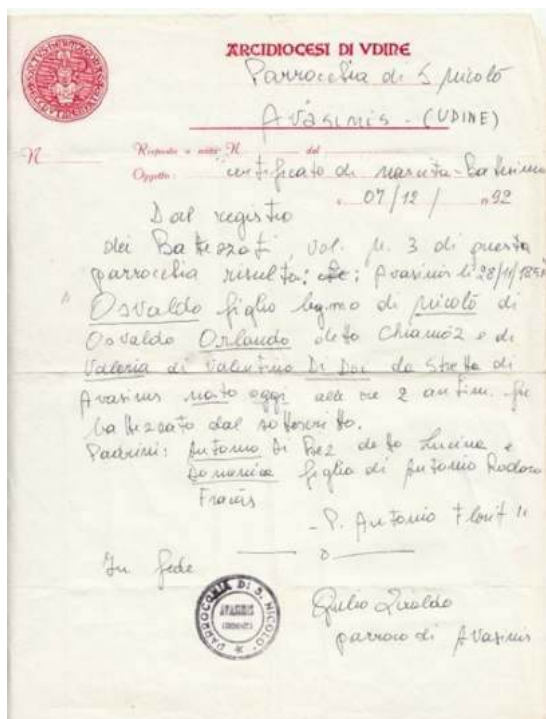 ARCIDIOCESI DI VDINE
Parrocchia di S. Nicolò
Avasinis - (UDINE)
N
Risposta a nota N. del
Oggetto: certificato di nascita-battesimo
07/12/ 92
Dal registro
dei Battezzati, vol. n. 3 di questa
parrocchia risulta: Avasinis li 28/11/
Osvaldo figlio legmo di Nicolò di
Osvaldo Orlando detto Chiamòz e di
Valeria di Valentino Di Doi da Stretta di
Avasinis nato oggi alle ore 2 antim. fu
battezzato dal sottoscritto.
Padrini: Antonio Di Bez detto Lucina e
Domenica figlia di Antonio Rodaro
Francis
- P. Antonio Florit "
In fede
PARROCCHIA DI S. NICOLO'
AVASINIS
Giulio Ziraldo
parroco di Avasinis